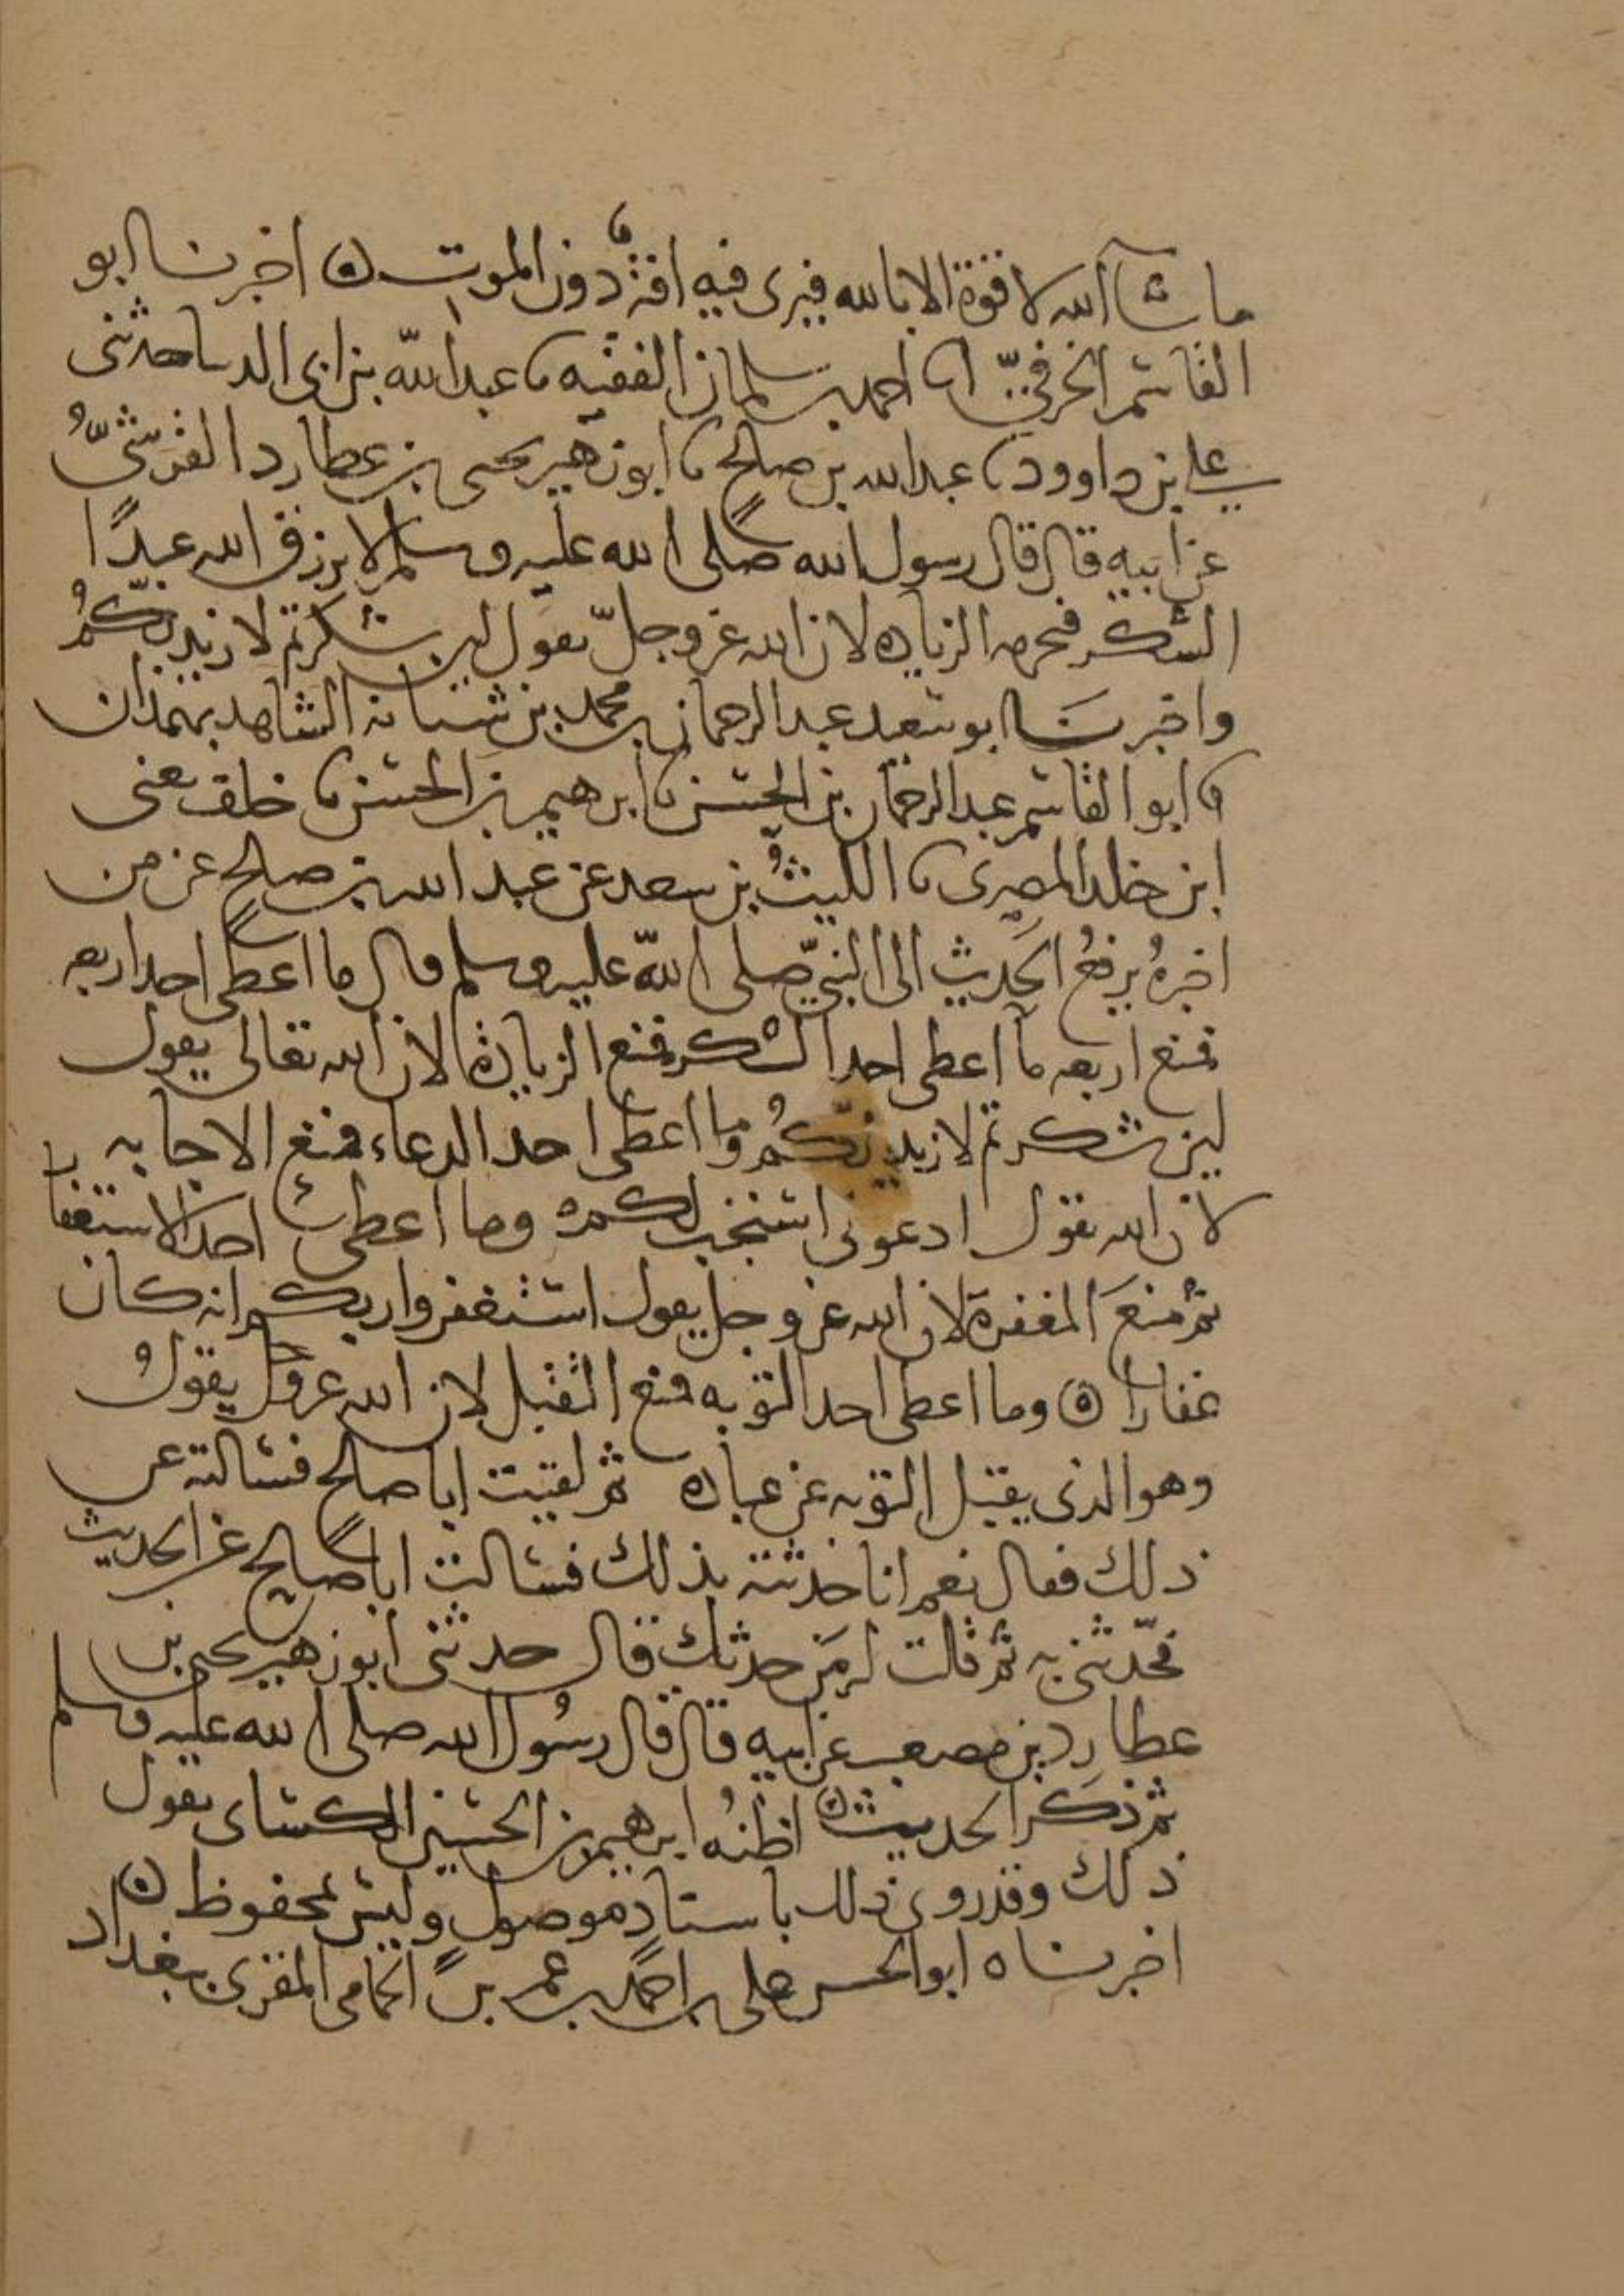 ما شآ الله لا قوة الا بالله فيرى فيه افة دون الموت ه اخبرنا ابو
القاسم الخرفيّ انا احمد بن سلمان الفقيه نا عبد الله بن ابى الدنيا حدثنى
على بن داوود نا عبد الله بن صالح نا ابو زهير يحيى بن عطارد القرشىُّ
عن ابيه قال قال رسول الله صلى الله عليه وسلم لا يرزق الله عبدًا
الشكر فيحرمه الزيادة لان الله عز وجلّ يقول لين شكرتم لازيدنّكمُ
واخبرنَا ابو سعد عبد الرحمان بن محمد بن شبانة الشاهد بهمذان
نا ابو القاسم عبد الرحمان بن الحسن نا ابرهيم بن الحسن نا خلف يعنى
ابن خلد المصرى نا الليثُ بن سعد عن عبد الله بن صالح عن من
اخبرهُ يرفعُ الحديث الى النبيّ صلى اللّه عليه وسلم قال ما اعطى احد اربعه
فمنع اربعه ما اعطى احد الشكر فمنع الزيادة لان الله تعالى يقول
لين شكرتم لازيدنّكمُ وما اعطى احد الدعاء فمنع الاجابه
لان الله يقول ادعونى استجب لكم وما اعطى احد الاستغفار
ثم منعَ المغفرة لان الله عز وجل يقول استغفروا ربكم انه كان
غفارا ه وما اعطى احد التوبه فمنع التقبل لان الله عز وجل يقولُ
وهو الذى يقبل التوبه عن عباده ثم لقيت ابا صالح فسالته عن
ذلك فقال نعم انا حدثته بذلك فسالت ابا صالح عن الحديث
فحدّثنى به ثم قلت له مَن حدثك قال حدثنى ابو زهير يحيى بن
عطارد بن مصعب عن ابيه قال قال رسُول الله صلى الله عليه وسلم
ثم ذكَر الحديث ه اظنهُ ابرهيم بن الحسين الكسائى يقول
ذلك وقد روى ذلك باسنادٍ موصول وليس بمحفوظ ه
اخبرناه ابو الحسن على بن احمد بن عمر بن الحمامى المقرى ببغداد